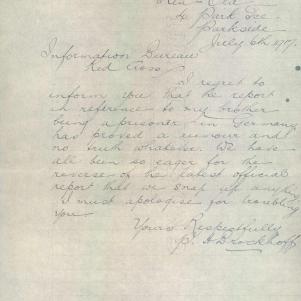 Park Tce
Parkside
July 6th 1917.
Information Bureau
Red Cross
I regret to
inform you that the report
in reference to my brother
being a prisoner in Germany
has proved a rumour and
no truth whatever. We have
all been so eager for the
reverse of the latest official
report that we snap up any
I must apologise for troubling
you
Yours Respectfully
A Brockhoff